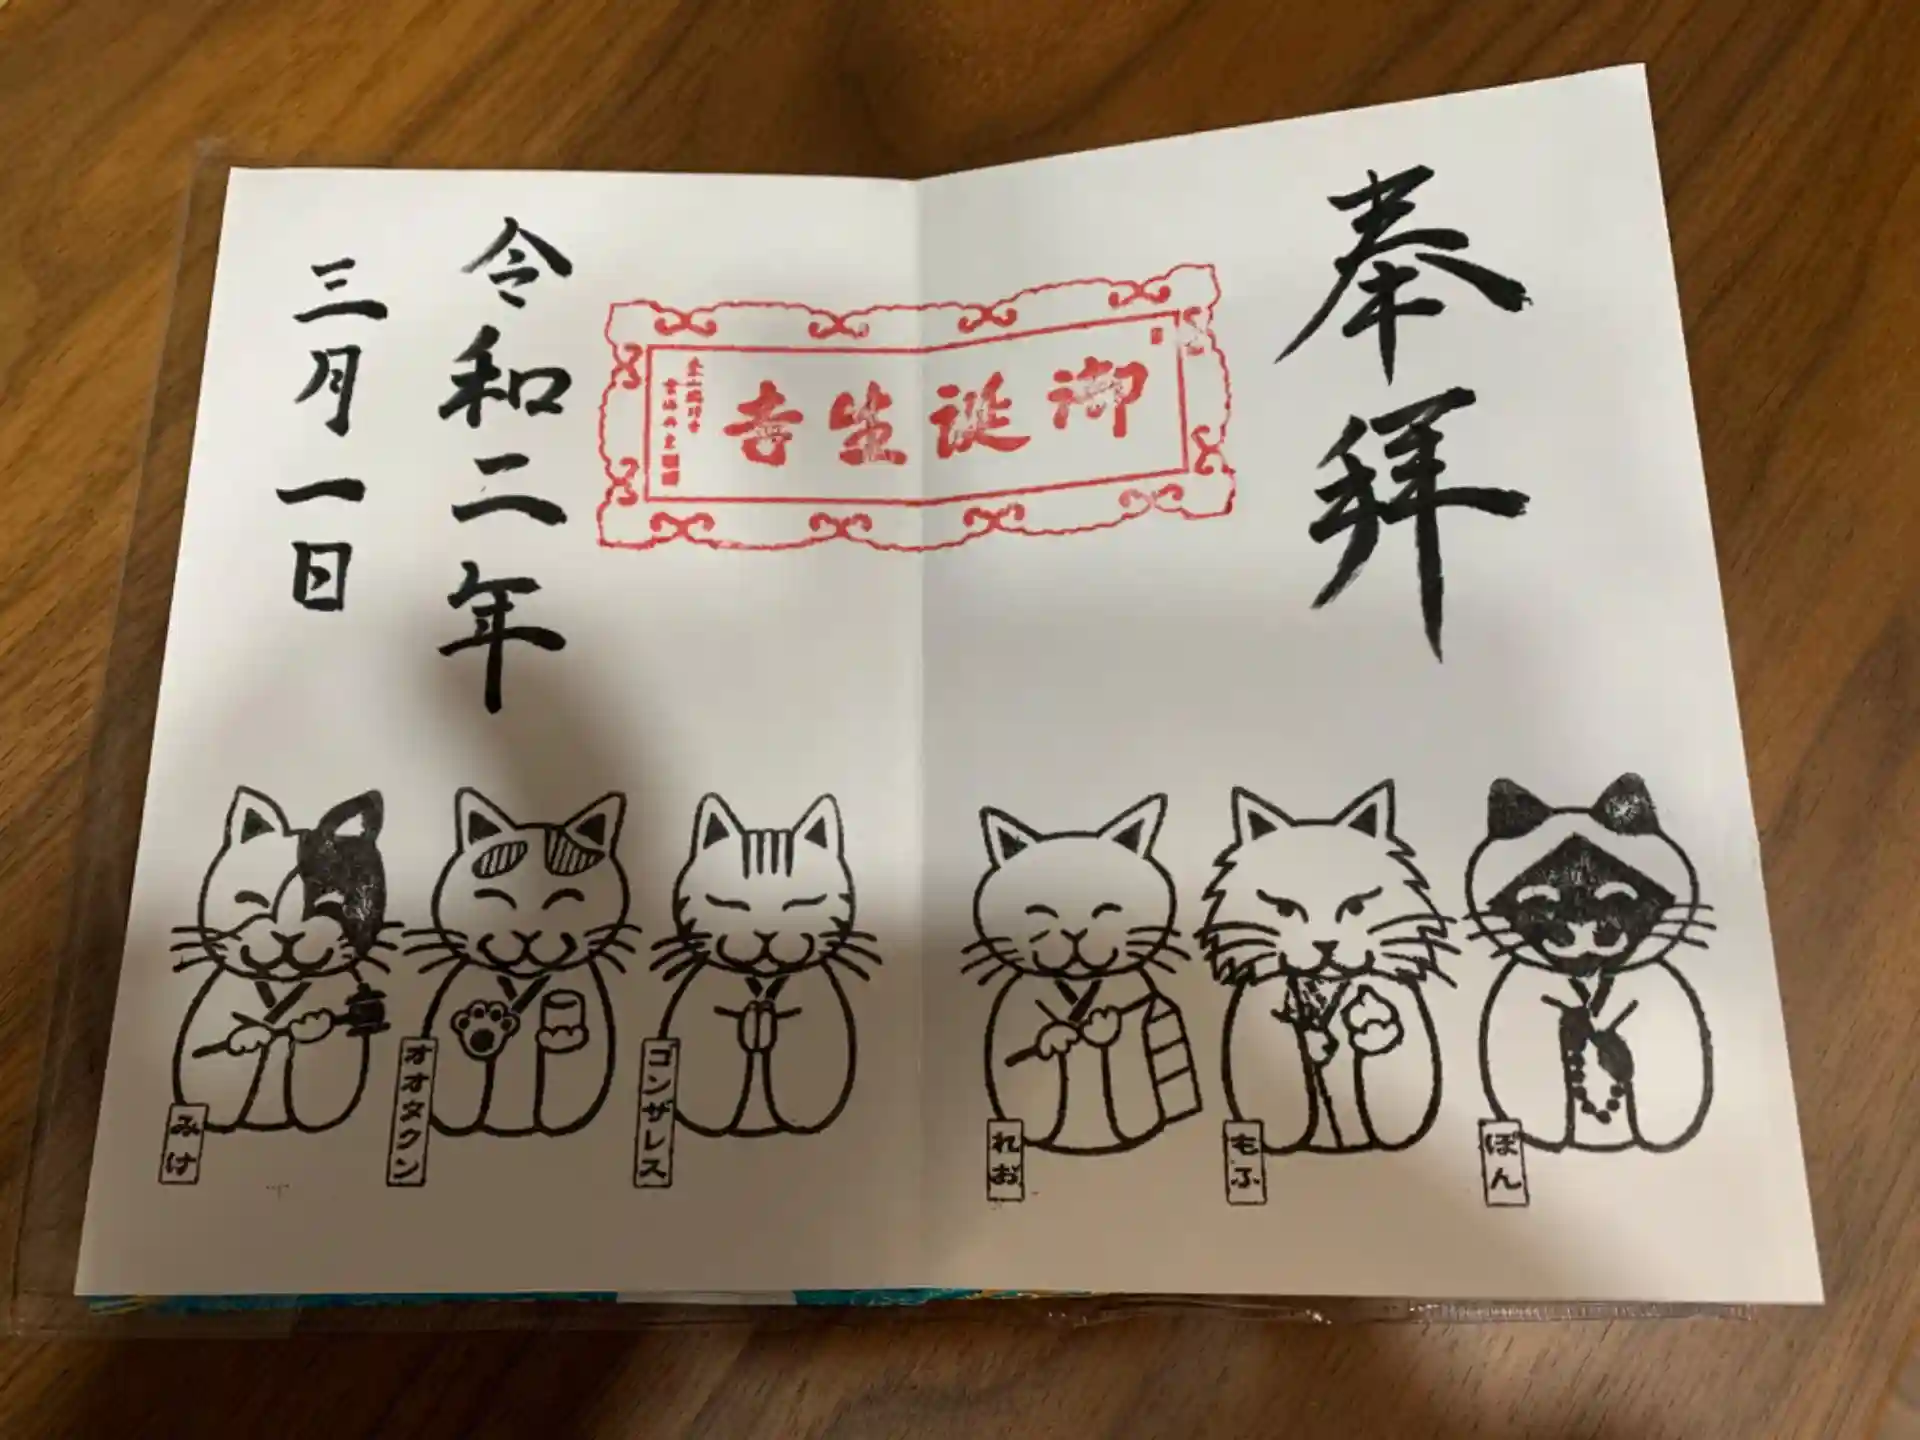 奉拝
御誕生寺
令和二年
三月一日
ぽん
もふ
れお
ゴンザレス
オオタクン
みけ